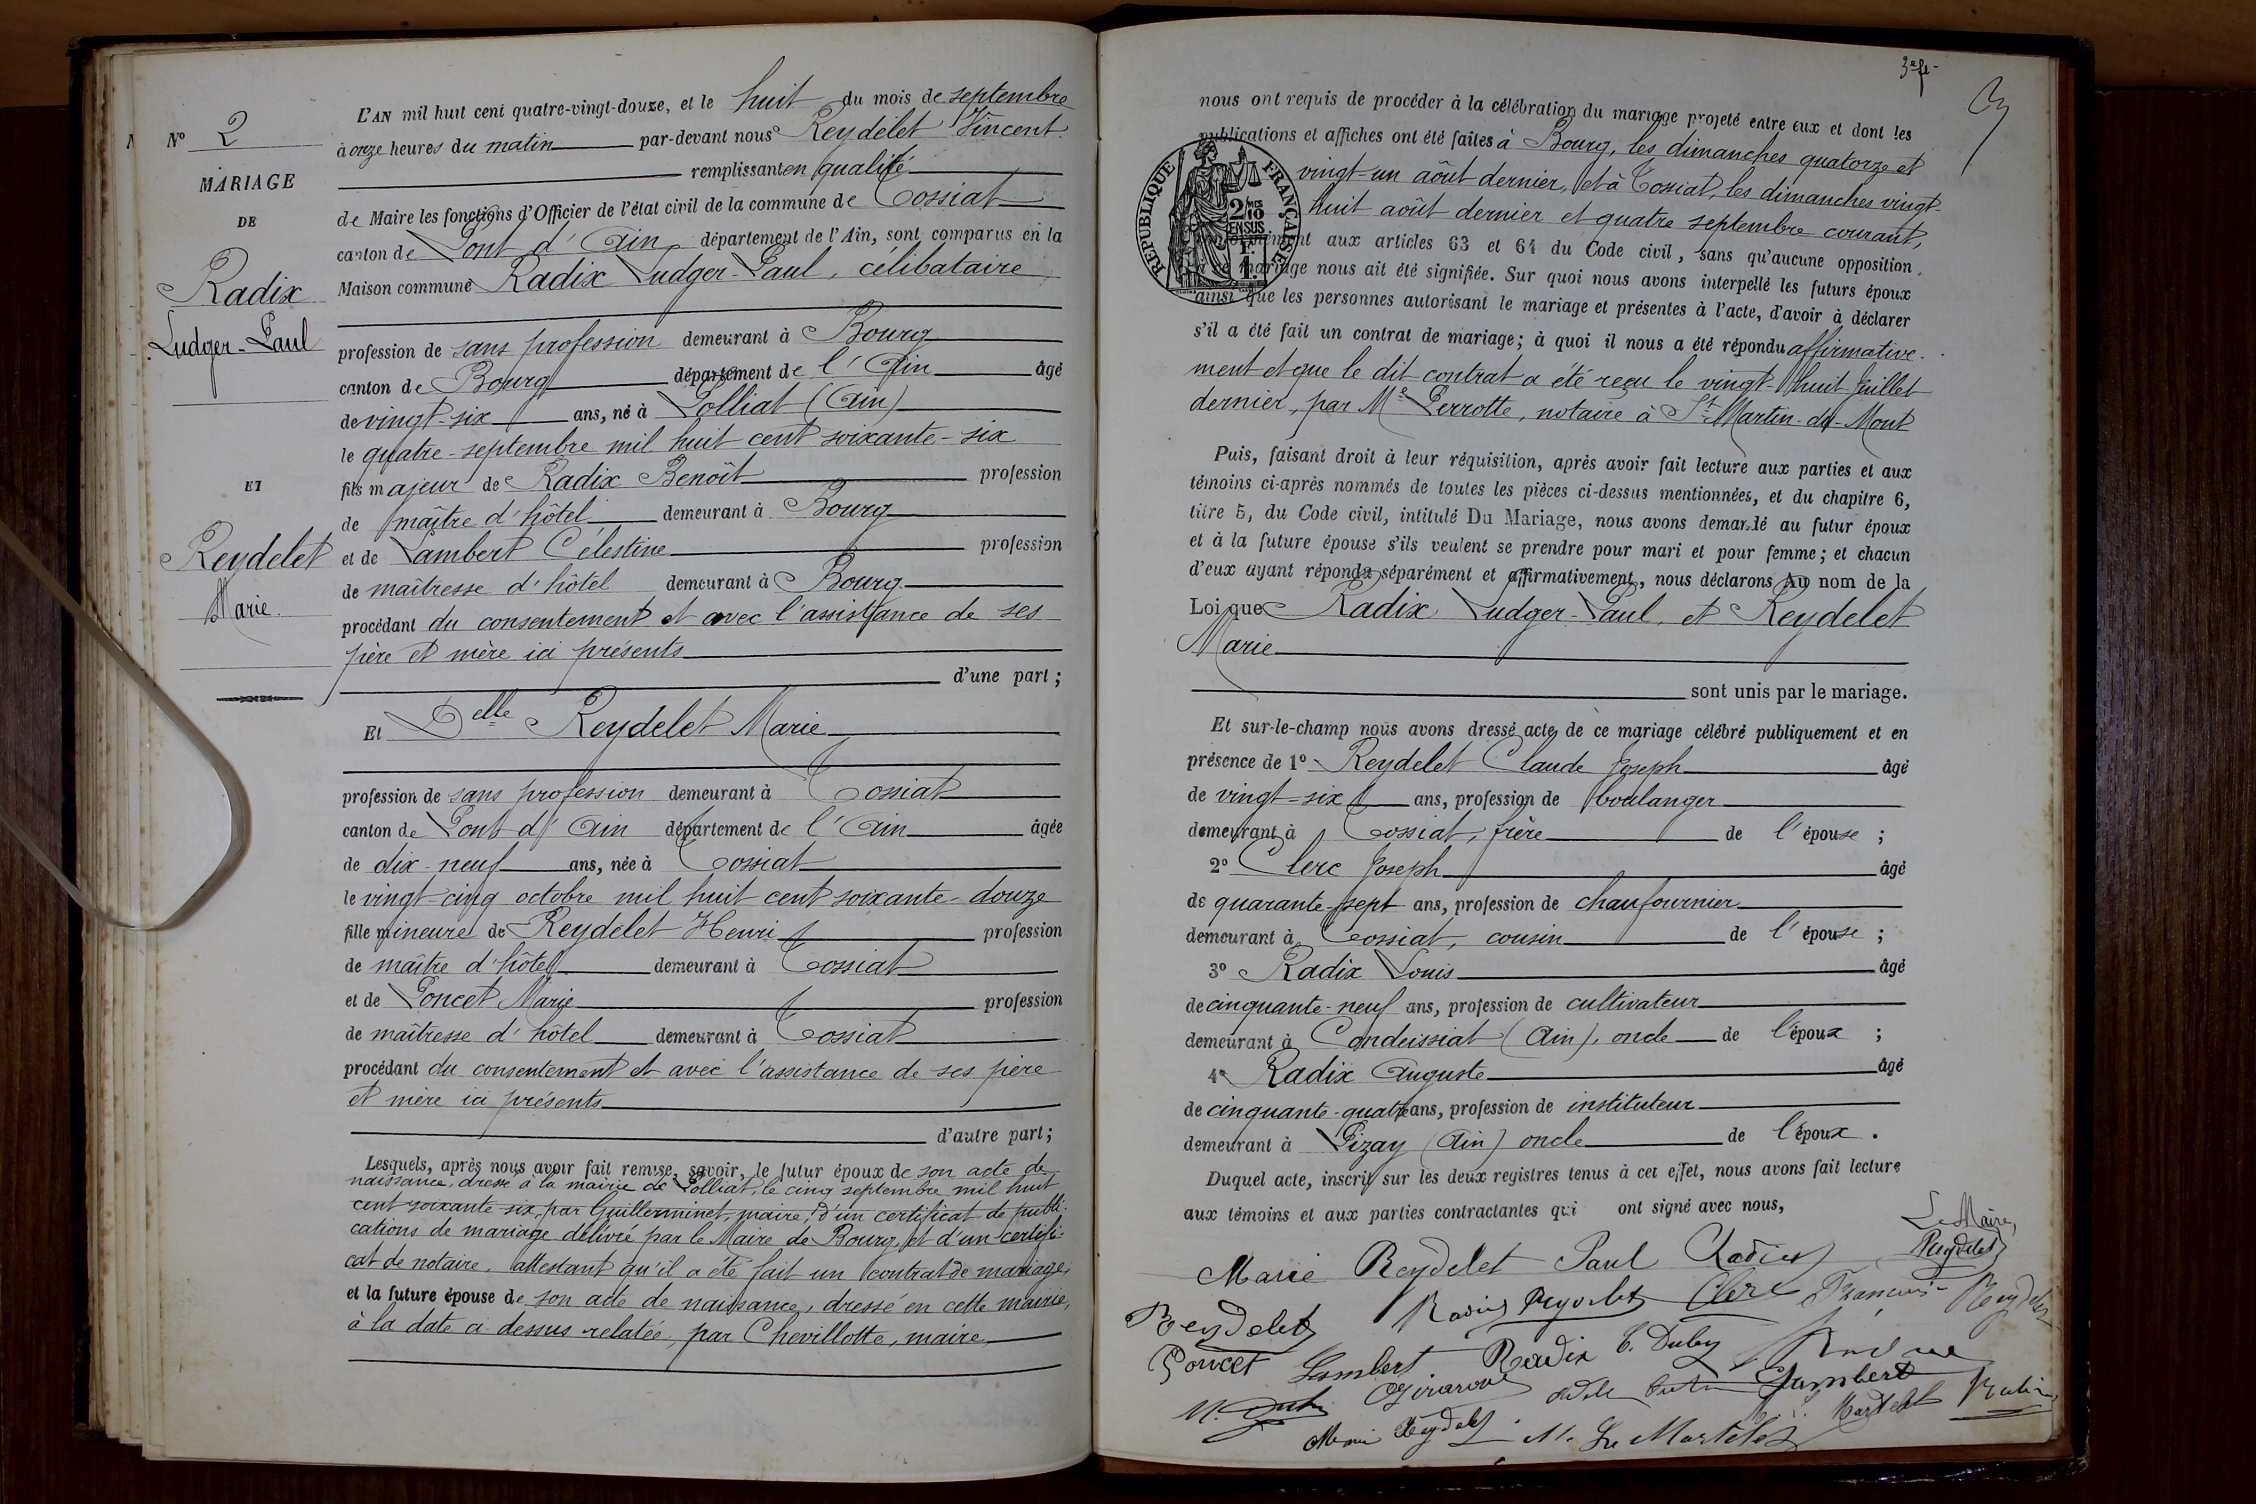 N° 2
MARIAGE
DE
Radix
Ludger-Paul
ET
Reydelet
Marie.
L'AN mil huit cent quatre-vingt-douze, et le huit du mois de septembre
à onze heures du matin par-devant nous Reydelet Vincent
remplissant en qualité
de Maire les fonctions d'Officier de l'état civil de la commune de Tossiat
canton de Pont d'Ain département de l'Ain, sont comparus en la
Maison commune Radix Ludger-Paul, célibataire
profession de sans profession demeurant à Bourg
canton de Bourg département de l'Ain âgé
de vingt-six ans, né à Polliat (Ain)
le quatre septembre mil huit cent soixante-six
fils majeur de Radix Benoît profession
de maître d'hôtel demeurant à Bourg
et de Lambert Célestine profession
de maîtresse d'hôtel demeurant à Bourg
procédant du consentement et avec l'assistance de ses
père et mère ici présents
d'une part;
Et Delle Reydelet Marie
profession de sans profession demeurant à Tossiat
canton de Pont d'Ain département de l'Ain âgée
de dix-neuf ans, née à Tossiat
le vingt-cinq octobre mil huit cent soixante-douze
fille mineure de Reydelet Henri profession
de maître d'hôtel demeurant à Tossiat
et de Poncet Marie profession
de maîtresse d'hôtel demeurant à Tossiat
procédant du consentement et avec l'assistance de ses père
et mère ici présents
d'autre part;
Lesquels, après nous avoir fait remise, savoir, le futur époux de son acte de
naissance, dressé à la mairie de Polliat, le cinq septembre mil huit
cent soixante-six, par Guillerminet, maire, d'un certificat de publi-
cations de mariage délivré par le Maire de Bourg, et d'un certifi-
cat de notaire, attestant qu'il a été fait un contrat de mariage,
et la future épouse de son acte de naissance, dressé en cette mairie,
à la date ci-dessus relatée, par Chevillotte, maire,
3e ft
nous ont requis de procéder à la célébration du mariage projeté entre eux et dont les
publications et affiches ont été faites à Bourg, les dimanches quatorze et
vingt-un août dernier, et à Tossiat, les dimanches vingt-
huit août dernier et quatre septembre courant,
aux articles 63 et 64 du Code civil, sans qu'aucune opposition
mariage nous ait été signifiée. Sur quoi nous avons interpellé les futurs époux
ainsi que les personnes autorisant le mariage et présentes à l'acte, d'avoir à déclarer
s'il a été fait un contrat de mariage; à quoi il nous a été répondu affirmative-
ment et que le dit contrat a été reçu le vingt-huit juillet
dernier, par Me Perrotte, notaire à St Martin-du-Mont
RÉPUBLIQUE FRANÇAISE
2/10 EN SUS
1 F.
Puis, faisant droit à leur réquisition, après avoir fait lecture aux parties et aux
témoins ci-après nommés de toutes les pièces ci-dessus mentionnées, et du chapitre 6,
titre 5, du Code civil, intitulé Du Mariage, nous avons demandé au futur époux
et à la future épouse s'ils veulent se prendre pour mari et pour femme; et chacun
d'eux ayant répondu séparément et affirmativement, nous déclarons Au nom de la
Loi que Radix Ludger-Paul, et Reydelet
Marie
sont unis par le mariage.
Et sur-le-champ nous avons dressé acte de ce mariage célébré publiquement et en
présence de 1° Reydelet Claude Joseph âgé
de vingt-six ans, profession de boulanger
demeurant à Tossiat, frère de l'épouse;
2° Clerc Joseph âgé
de quarante-sept ans, profession de chaufournier
demeurant à Tossiat, cousin de l'épouse;
3° Radix Louis âgé
de cinquante-neuf ans, profession de cultivateur
demeurant à Condeissiat (Ain), oncle de l'époux;
4° Radix Auguste âgé
de cinquante-quatre ans, profession de instituteur
demeurant à Pizay (Ain) oncle de l'époux.
Duquel acte, inscrit sur les deux registres tenus à cet effet, nous avons fait lecture
aux témoins et aux parties contractantes qui ont signé avec nous,
Le Maire,
Reydelet
Marie Reydelet Paul Radix
Reydelet Radix Reydelet Clerc François Reydelet
Poncet Lambert Radix C. Duby
Lambert
Marie Reydelet